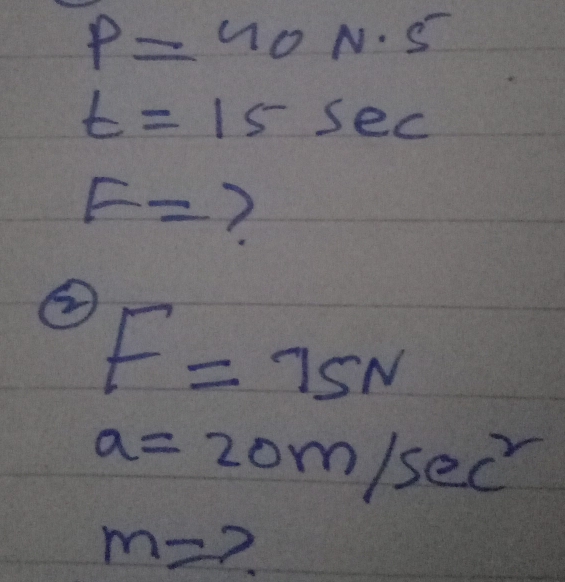 P = 40 N·S
t = 15 sec
F = ?
②
F = 75N
a = 20m/sec²
m = ?